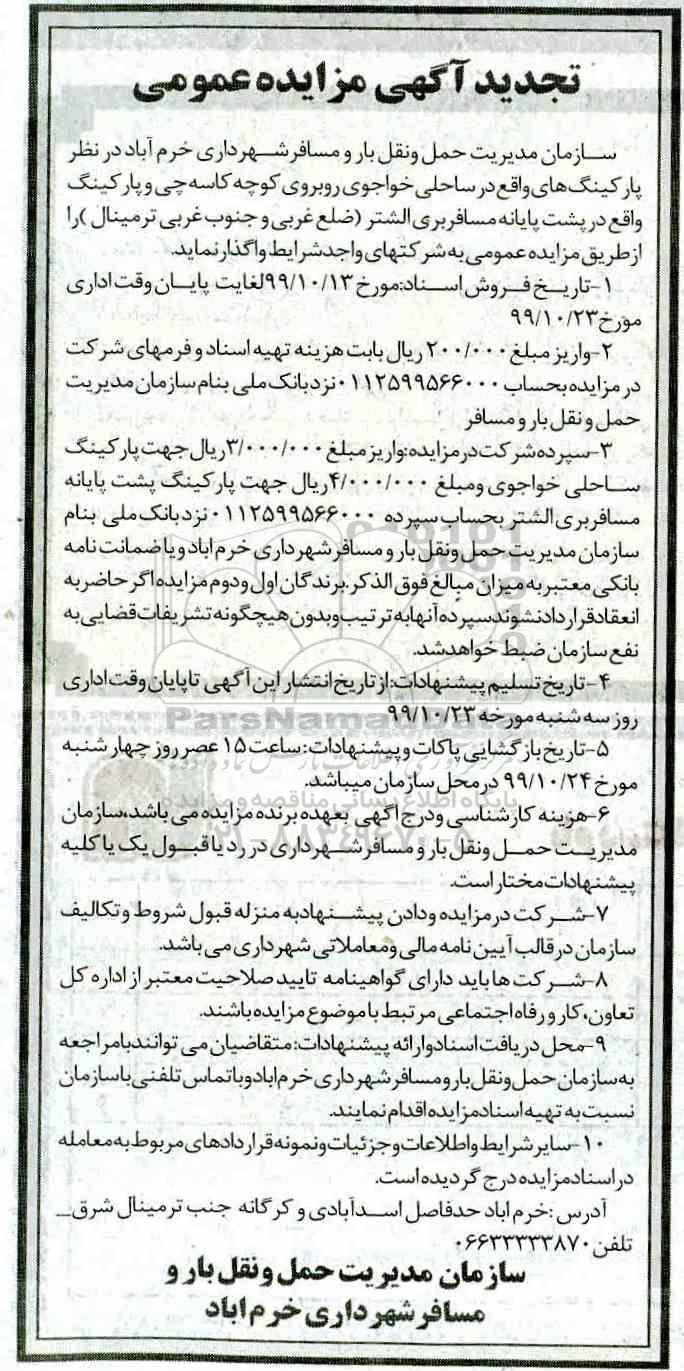 تجدید آگهی مزایده عمومی
سازمان مدیریت حمل ونقل بار و مسافر شهرداری خرم آباد در نظر
پارکینگ های واقع در ساحلی خواجوی روبروی کوچه کاسه چی و پارکینگ
واقع در پشت پایانه مسافربری الشتر (ضلع غربی و جنوب غربی ترمینال) را
از طریق مزایده عمومی به شرکتهای واجد شرایط واگذار نماید.
۱-تاریخ فروش اسناد:مورخ ۹۹/۱۰/۱۳لغایت پایان وقت اداری
مورخ۹۹/۱۰/۲۳
۲-واریز مبلغ ۲۰۰/۰۰۰ ریال بابت هزینه تهیه اسناد و فرمهای شرکت
در مزایده بحساب ۰۱۱۲۵۹۹۵۶۶۰۰۰نزد بانک ملی بنام سازمان مدیریت
حمل و نقل بار و مسافر
۳-سپرده شرکت در مزایده:واریز مبلغ ۳/۰۰۰/۰۰۰ریال جهت پارکینگ
ساحلی خواجوی ومبلغ ۴/۰۰۰/۰۰۰ریال جهت پارکینگ پشت پایانه
مسافربری الشتر بحساب سپرده ۰۱۱۲۵۹۹۵۶۶۰۰۰ نزد بانک ملی بنام
سازمان مدیریت حمل ونقل بار و مسافر شهرداری خرم اباد و یا ضمانت نامه
بانکی معتبر به میزان مبالغ فوق الذکر.برندگان اول و دوم مزایده اگر حاضر به
انعقاد قرارداد نشوند سپرده آنها به ترتیب و بدون هیچگونه تشریفات قضایی به
نفع سازمان ضبط خواهد شد.
۴-تاریخ تسلیم پیشنهادات:از تاریخ انتشار این آگهی تا پایان وقت اداری
روز سه شنبه مورخه ۹۹/۱۰/۲۳
ParsNamadData
۵-تاریخ بازگشایی پاکات و پیشنهادات: ساعت ۱۵ عصر روز چهارشنبه
مورخ ۹۹/۱۰/۲۴ در محل سازمان میباشد.
پایگاه اطلاع رسانی مناقصه و مزایده
۶-هزینه کارشناسی و درج آگهی بعهده برنده مزایده می باشد،سازمان
۰۲۱-۸۸۳۴۹۶۷۰-۵
مدیریت حمل ونقل بار و مسافر شهرداری در رد یا قبول یک یا کلیه
پیشنهادات مختار است.
۷-شرکت در مزایده و دادن پیشنهاد به منزله قبول شروط و تکالیف
سازمان در قالب آیین نامه مالی و معاملاتی شهرداری می باشد.
۸-شرکت ها باید دارای گواهینامه تایید صلاحیت معتبر از اداره کل
تعاون،کار و رفاه اجتماعی مرتبط با موضوع مزایده باشند.
۹-محل دریافت اسناد و ارائه پیشنهادات: متقاضیان می توانند با مراجعه
به سازمان حمل و نقل بار و مسافر شهرداری خرم اباد و با تماس تلفنی با سازمان
نسبت به تهیه اسناد مزایده اقدام نمایند.
۱۰-سایر شرایط و اطلاعات و جزئیات و نمونه قراردادهای مربوط به معامله
در اسناد مزایده درج گردیده است.
آدرس :خرم اباد حدفاصل اسدآبادی و کرگانه جنب ترمینال شرق_
تلفن ۰۶۶۳۳۳۳۳۸۷۰
سازمان مدیریت حمل و نقل بار و
مسافر شهرداری خرم اباد